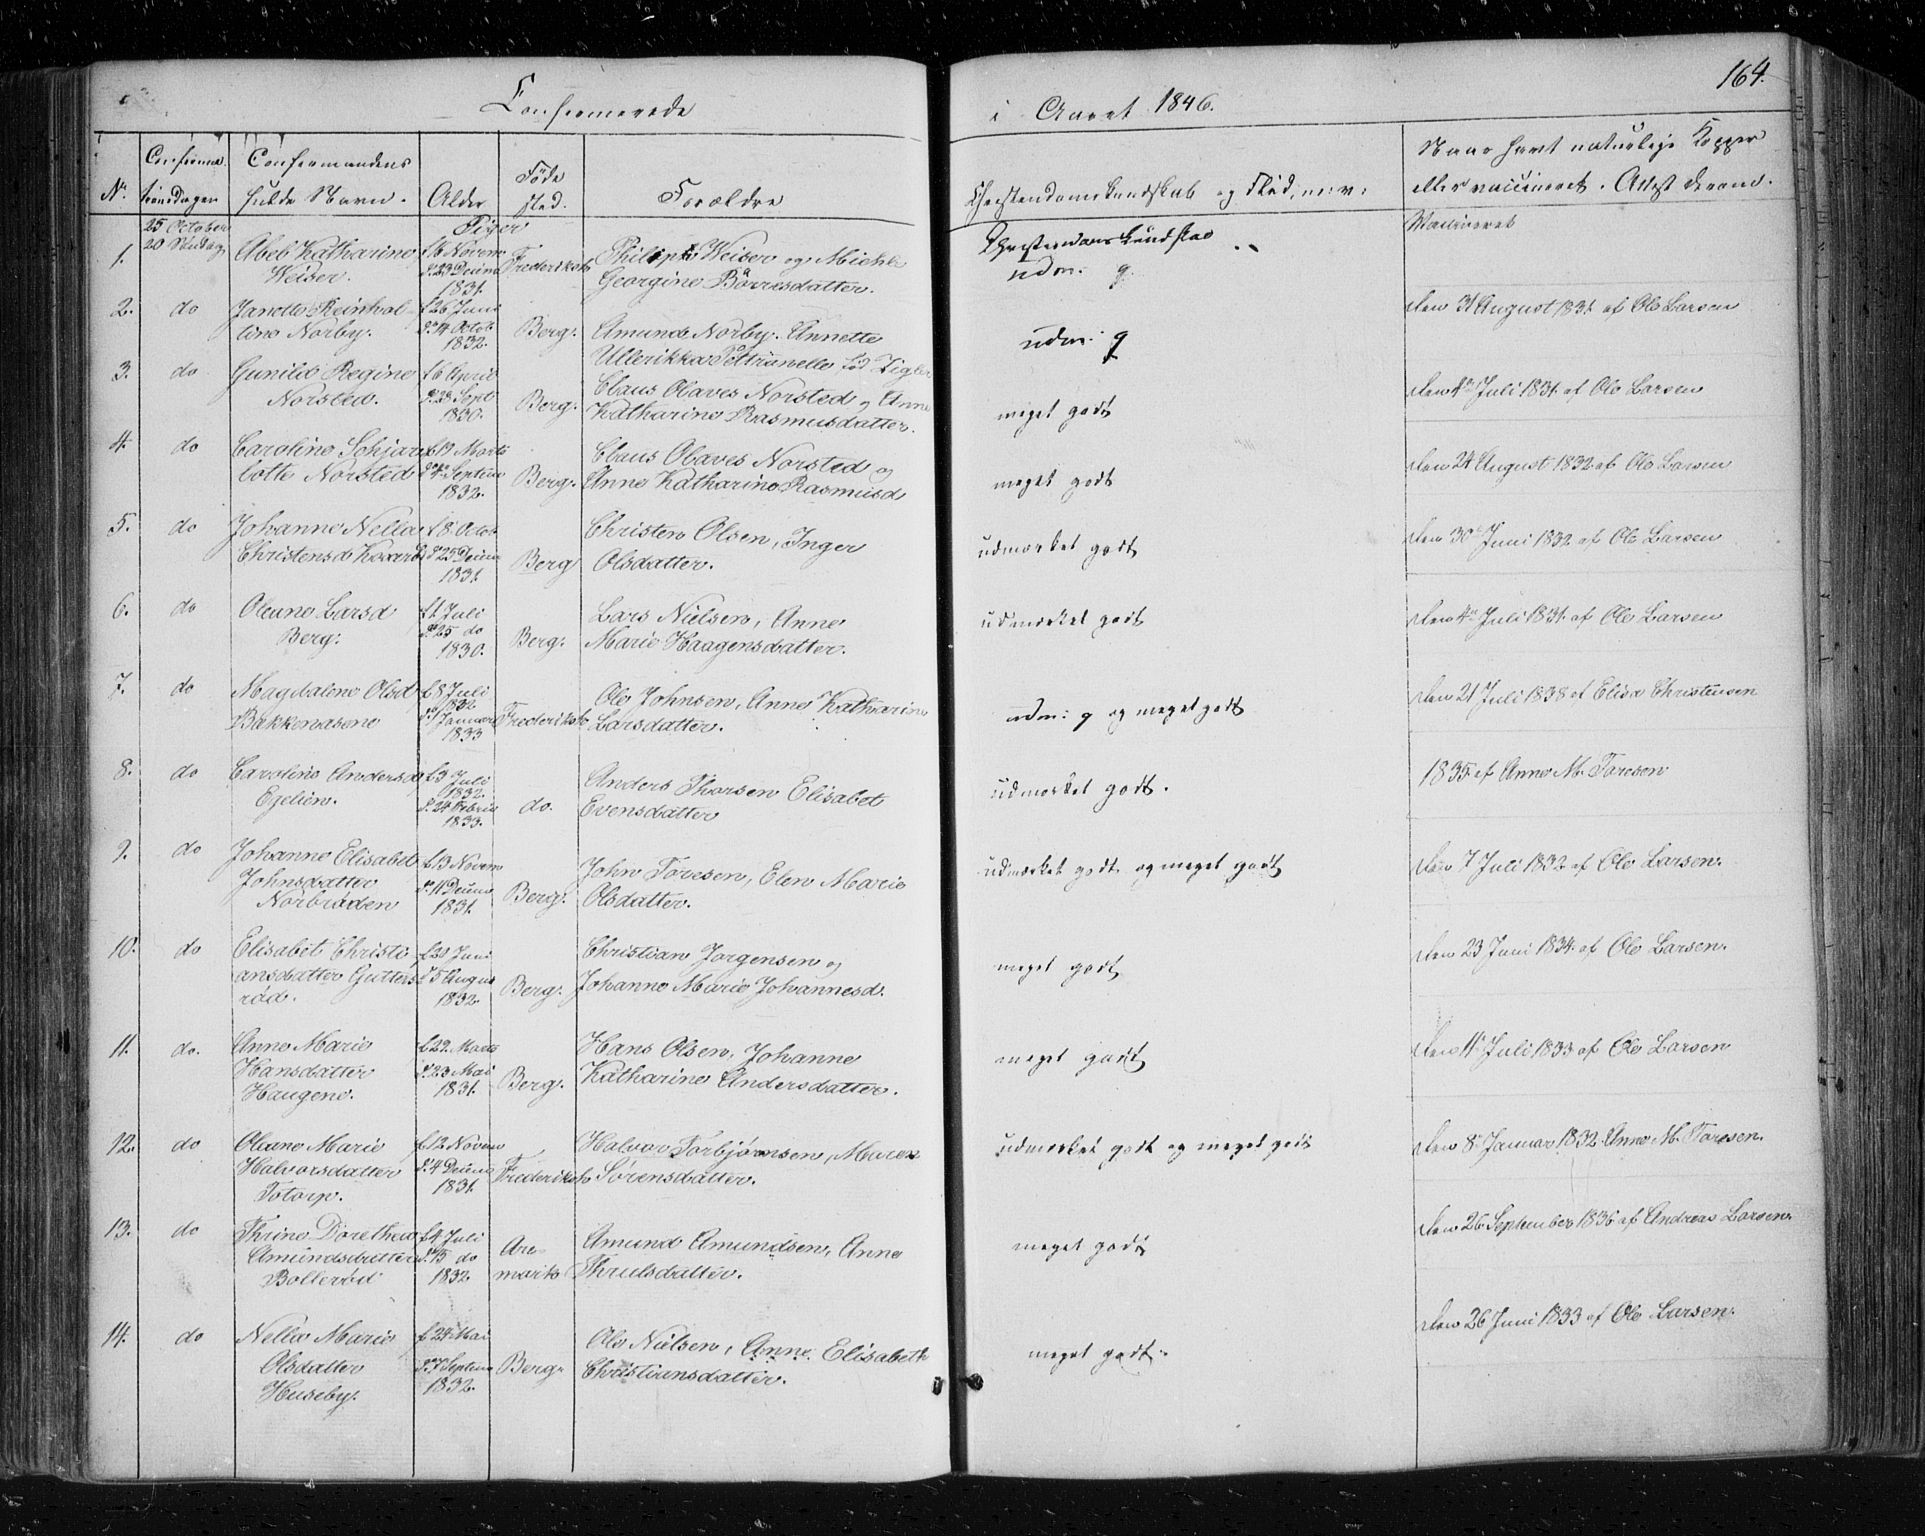 Confirmerede i Aaret 1846. 164.
No. Confirmationsdagen Confirmandens fulde Navn. Alder Føde sted. Forældre Christendomskundskab og Flid, m: v: Naar havt naturlige Kopper eller vaccineret. Attest derom.
25 October Piger Christendomskundskab Vaccineret
20 Søndag
1. Abel Katharine f 16 Novem Frederiksh Philip Weiser og Michl
Weiser. d. 23 Decem 1831. Georgine Börresdatter. udm: g.
2. do Janette Reinhol- f 26 Juni den 31 August 1831. af Ole Larsen
tine Norby. d. 14 Octob 1832. Berg. Amund Norby. Annette udm: g
Ullerikka Pettrinelle fød Zigler
3. do Gunild Regine f 6 April Claus Olaves Norsted og Anne den 4de Juli 1831. af Ole Larsen
Norsted. 1830. Berg. Katharine Rasmusdatter. meget godt
4. do Caroline Schjar f 19 Marts Claus Olaves Norsted og den 24 August 1832. af Ole Larsen
lotte Norsted Septem 1832. Berg. Anne Katharine Rasmusd meget godt
5. do Johanne Nella f 8 Octob Christen Olsen, Inger den 30 Juni 1832. af Ole Larsen
Christensd d. 25 Decem 1831. Berg Olsdatter. udmærket godt
6. do Oleane Larsd f 1 Juli Lars Nielsen, Anne den 4de Juli 1831. af Ole Larsen
Berg. d. 25 do 1830. Berg. Marie Haagensdatter. udmærket godt
7. do Magdalene Olsd f 8 Juli 1832. Ole Johnsen, Anne Katharine den 21 Juli 1838 af Elisa Christensen
Bakkenasene Januar 1833 Frederiksh Larsdatter. udm: g og meget godt
8. do Caroline Andersd f 3 Juli 1832. Anders Thorsen Elisabet 1835. af Anne M. Toresen
Egelien. d. 24 Febru 1833. do. Evensdatter udmærket godt.
9. do Johanne Elisabet f 13 Novem John Toresen, Elen Marie den 7 Juli 1832 af Ole Larsen.
Johnsdatter d. 11 Decem Olsdatter. udmærket godt og meget godt
Norbröden 1831. Berg.
10. do Elisabet Christi f 20 Juni Christian Jorgensen og den 23 Juni 1834. af Ole Larsen.
ansdatter Gutters d. 5 August Johanne Marie Johannesd. meget godt
röd. 1832. Berg.
11. do. Anne Marie f 29. Marts Hans Olsen, Johanne den 11 Juli 1833 af Ole Larsen
Hansdatter d. 23 Mai Katharine Andersdatter. meget godt
Haugene. 1831. Berg.
12. do Oleane Marie f 12 Novem Halvor Torbjörnsen, Maren den 8 Januar 1832. Anne M. Toresen.
Halvorsdatter d. 4 Decem Sörensdatter. udmærket godt og meget godt
Totorp. 1831. Frederiksh
13. do Thrine Dorethea f 4 Juli Amund Amundsen, Anne den 26 September 1836 af Andreas Larsen.
Amundsdatter d. 15 do Are- Thrulsdatter. meget godt
Bolleröd 1832. mark
14. do Nella Marie f 24 Mai Ole Nielsen, Anne Elisabeth den 26 Juni 1833 af Ole Larsen.
Olsdatter Septem Christiansdatter. meget godt.
Huseby. 1832. Berg.